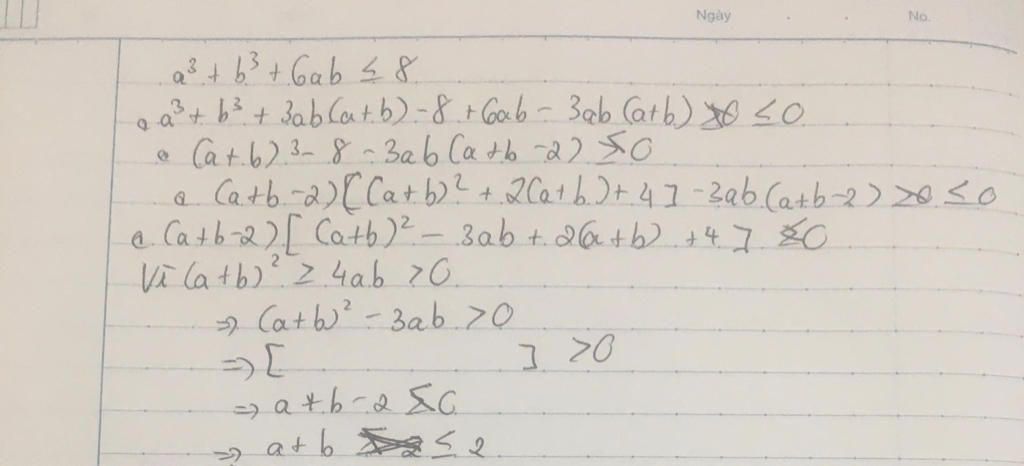 Ngày . . No.
a³ + b³ + 6ab ≤ 8
a³ + b³ + 3ab(a+b) - 8 + 6ab - 3ab(a+b) ≤ 0
(a+b)³ - 8 - 3ab(a+b-2) ≤ 0
(a+b-2)[(a+b)² + 2(a+b) + 4] - 3ab(a+b-2) ≤ 0
(a+b-2)[(a+b)² - 3ab + 2(a+b) + 4] ≤ 0
Vì (a+b)² ≥ 4ab > 0
⇒ (a+b)² - 3ab > 0
⇒ [ ] > 0
⇒ a+b-2 ≤ 0
⇒ a+b ≤ 2